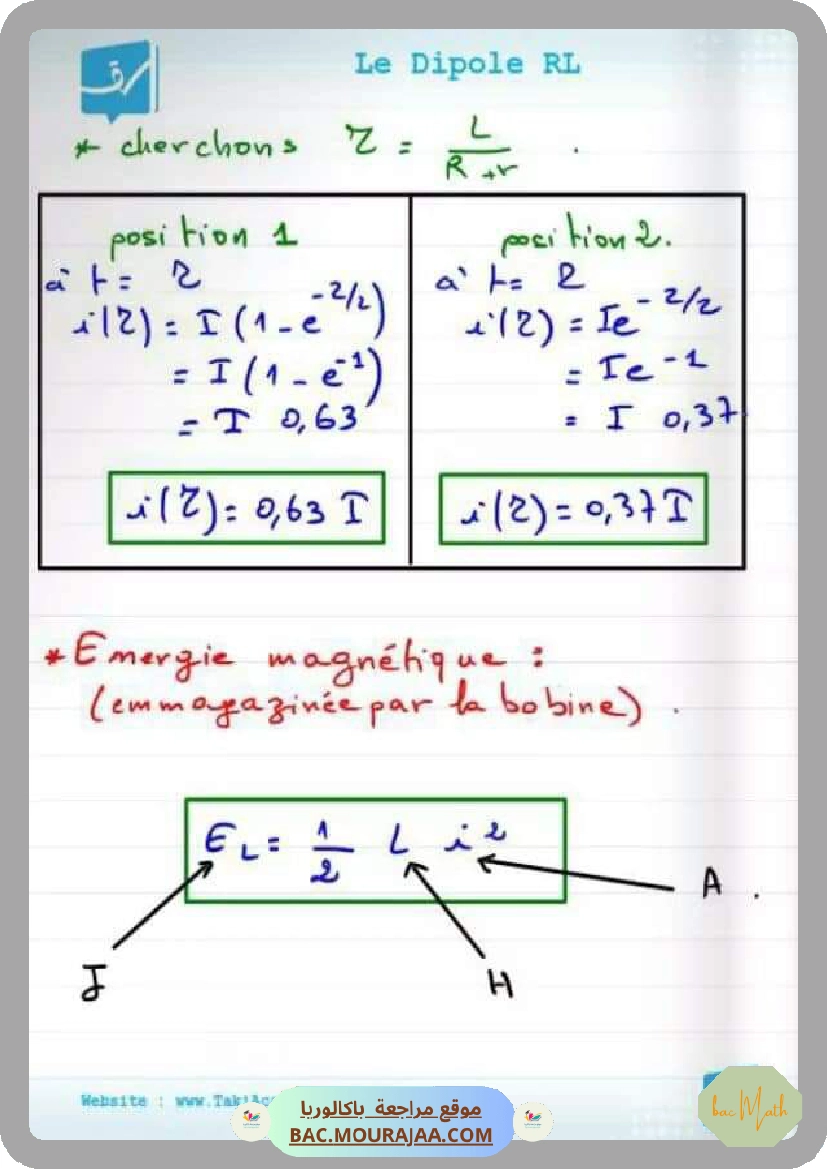 Le Dipole RL
* cherchons τ = L / R+r .
position 1
à t = τ
i(τ) = I (1 - e^-τ/τ)
= I (1 - e^-1)
= I 0,63
i(τ) = 0,63 I
position 2.
à t = τ
i(τ) = Ie^-τ/τ
= Ie^-1
= I 0,37
i(τ) = 0,37 I
* Emergie magnétique :
(emmagazinée par la bobine) .
E_L = 1/2 L i²
A .
J
H
Website : www.Tak
موقع مراجعة باكالوريا
BAC.MOURAJAA.COM
bac Math